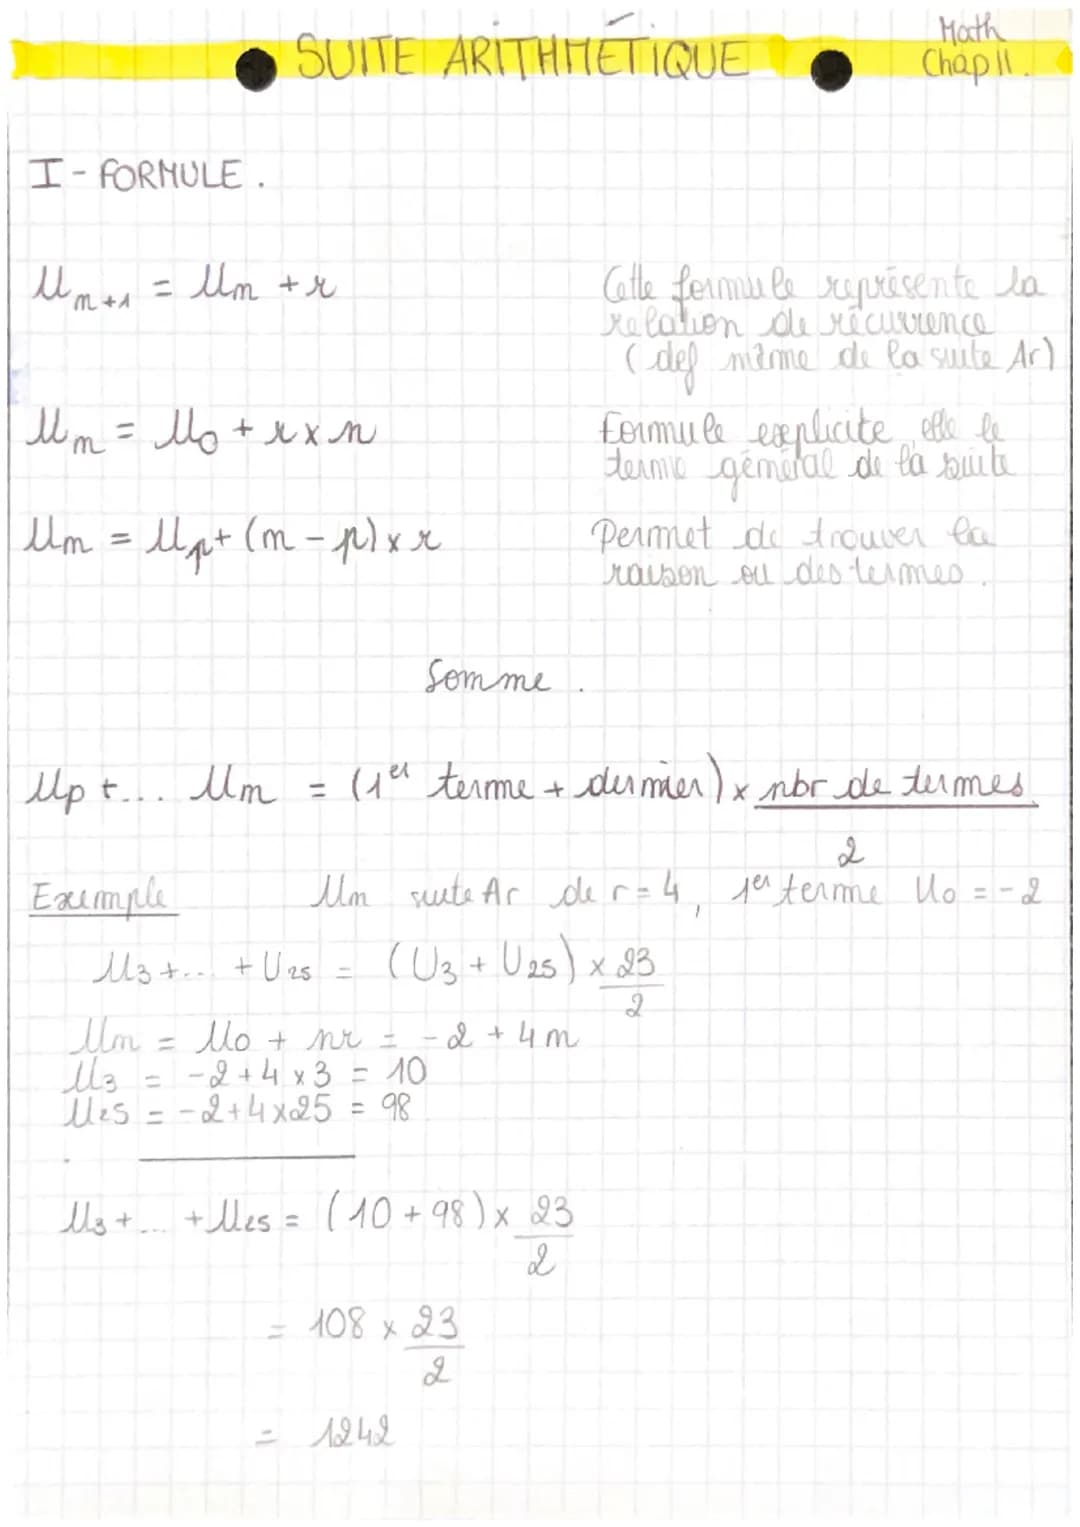 SUITE ARITHMÉTIQUE
Math
Chap 11.
I - FORMULE.
Un+1 = Un + r
Cette formule représente la
relation de récurrence
(def même de la suite Ar)
Un = U0 + r x n
Formule explicite, elle le
terme général de la suite
Un = Up + (n - p) x r
Permet de trouver la
raison ou des termes.
Somme.
Up + ... Un = (1er terme + dernier) x nbr de termes
2
Exemple Un suite Ar de r = 4, 1er terme U0 = -2
U3 + ... + U25 = (U3 + U25) x 23
2
Un = U0 + nr = -2 + 4n
U3 = -2 + 4 x 3 = 10
U25 = -2 + 4 x 25 = 98
U3 + ... + U25 = (10 + 98) x 23
2
= 108 x 23
2
= 1242